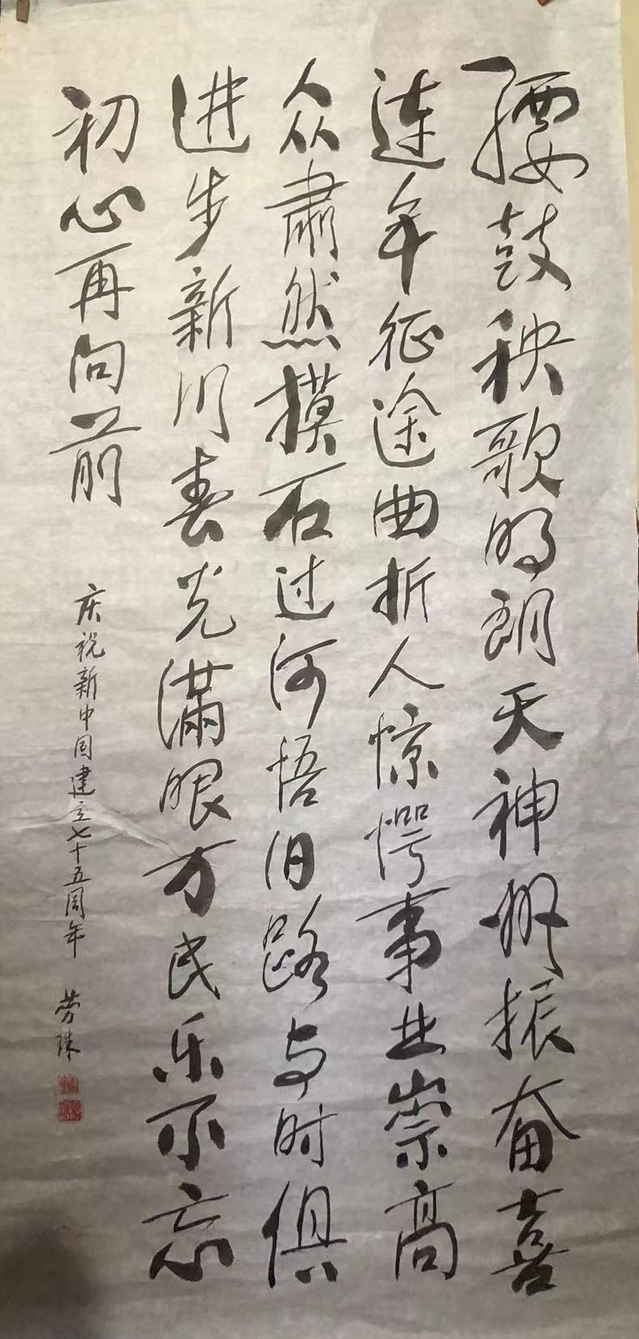 腰鼓秧歌明朗天神州振奋喜
连年征途曲折人惊愕事业崇高
人从肃然摸石过河悟旧路与时俱
进步新川春光满眼万民乐不忘
初心再向前
庆祝新中国建立七十五周年
劳陈